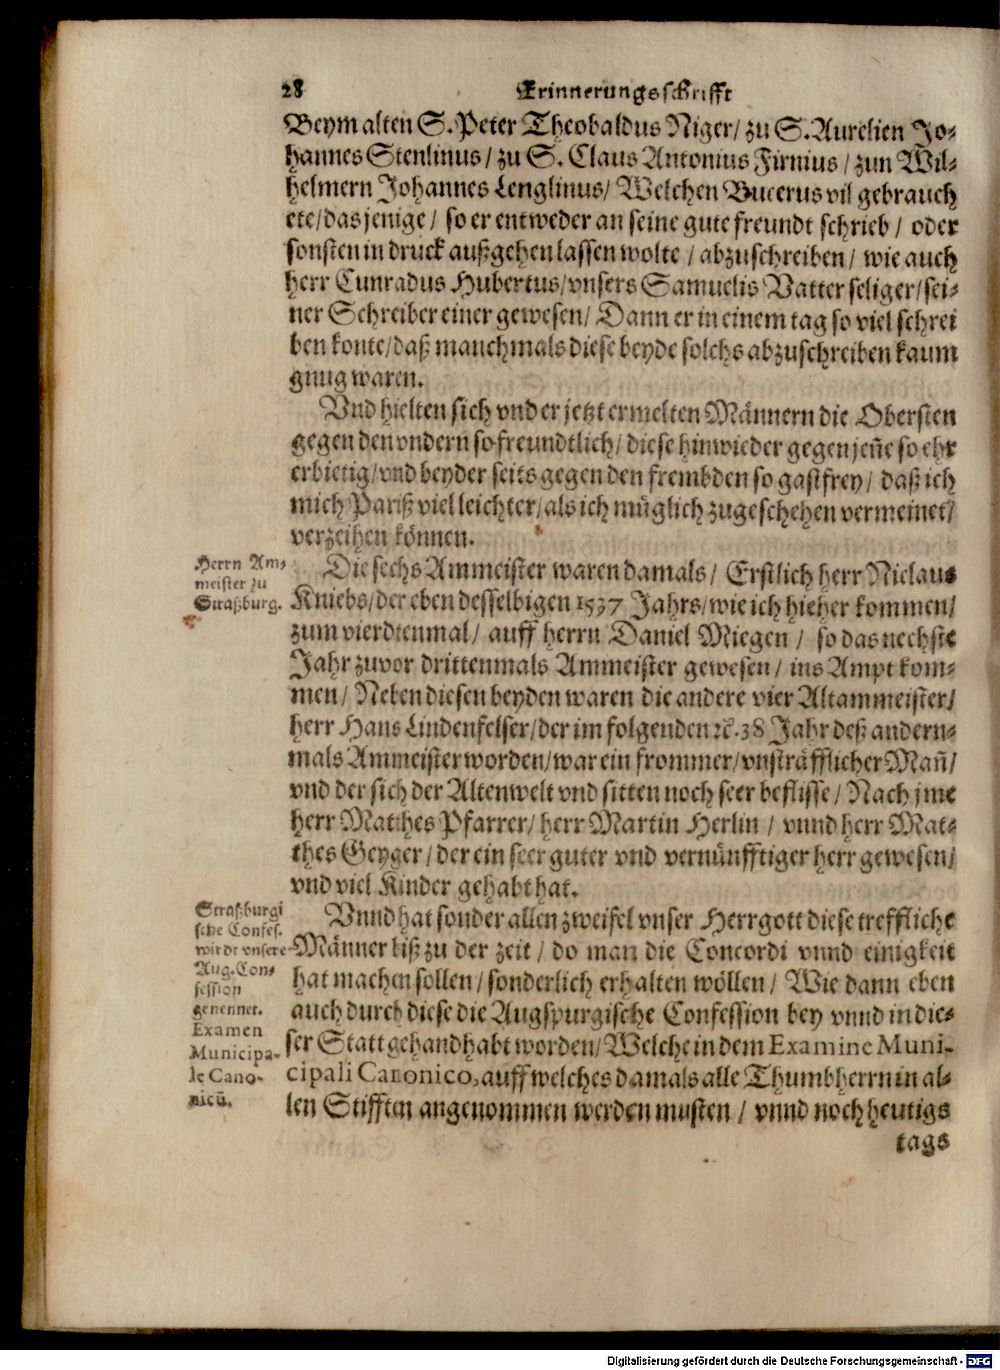 28 Erinnerungsschrifft
Beym alten S. Peter Theobaldus Niger/ zu S. Aurelien Jo-
hannes Stenlinus/ zu S. Claus Antonius Firnius/ zun Wil-
helmern Johannes Lenglinus/ Welchen Bucerus vil gebrauch
ete/ dasjenige/ so er entweder an seine gute freundt schrieb/ oder
sonsten in druck außgehen lassen wolte/ abzuschreiben/ wie auch
herr Cunradus Hubertus/ vnsers Samuelis Vatter seliger/ sei-
ner Schreiber einer gewesen/ Dann er in einem tag so viel schrei
ben konte/ daß manchmals diese beyde solchs abzuschreiben kaum
gnug waren.
Vnd hielten sich vnder jetzt ermelten Männern die Obersten
gegen den vndern so freundtlich/ diese hinwieder gegen jeñe so ehr
erbietig/ vnd beyder seits gegen den frembden so gastfrey/ daß ich
mich Pariß viel leichter/ als ich müglich zugeschehen vermeinet/
verzeihen können.
Herrn Am-
meister zu
Straßburg.
Die sechs Ammeister waren damals/ Erstlich herr Niclaus
Kniebs/ der eben desselbigen 1537 Jahrs/ wie ich hieher kommen/
zum vierdtenmal/ auff herrn Daniel Miegen/ so das nechste
Jahr zuvor drittenmals Ammeister gewesen/ ins Ampt kom-
men/ Neben diesen beyden waren die andere vier Altammeister/
herr Hans Lindenfelser/ der im folgenden ꝛc. 38 Jahr deß andern-
mals Ammeister worden/ war ein frommer/ vnsträfflicher Mañ/
vnd der sich der Altenwelt vnd sitten noch seer beflisse/ Nach jme
herr Matthes Pfarrer/ herr Martin Herlin/ vnnd herr Mat-
thes Geyger/ der ein seer guter vnd vernünfftiger herr gewesen/
vnd viel Kinder gehabt hat.
Straßburgi
sche Confes.
wirdt vnsere
Aug. Con-
fession
genennet.
Examen
Municipa-
le Cano-
nicū.
Vnnd hat sonder allen zweifel vnser Herrgott diese treffliche
Männer biß zu der zeit/ do man die Concordi vnnd einigkeit
hat machen sollen/ sonderlich erhalten wöllen/ Wie dann eben
auch durch diese die Augspurgische Confession bey vnnd in die-
ser Statt gehandhabt worden/ Welche in dem Examine Muni-
cipali Canonico, auff welches damals alle Thumbherrn in al-
len Stifften angenommen werden musten/ vnnd noch heutigs
tags
Digitalisierung gefördert durch die Deutsche Forschungsgemeinschaft - DFG